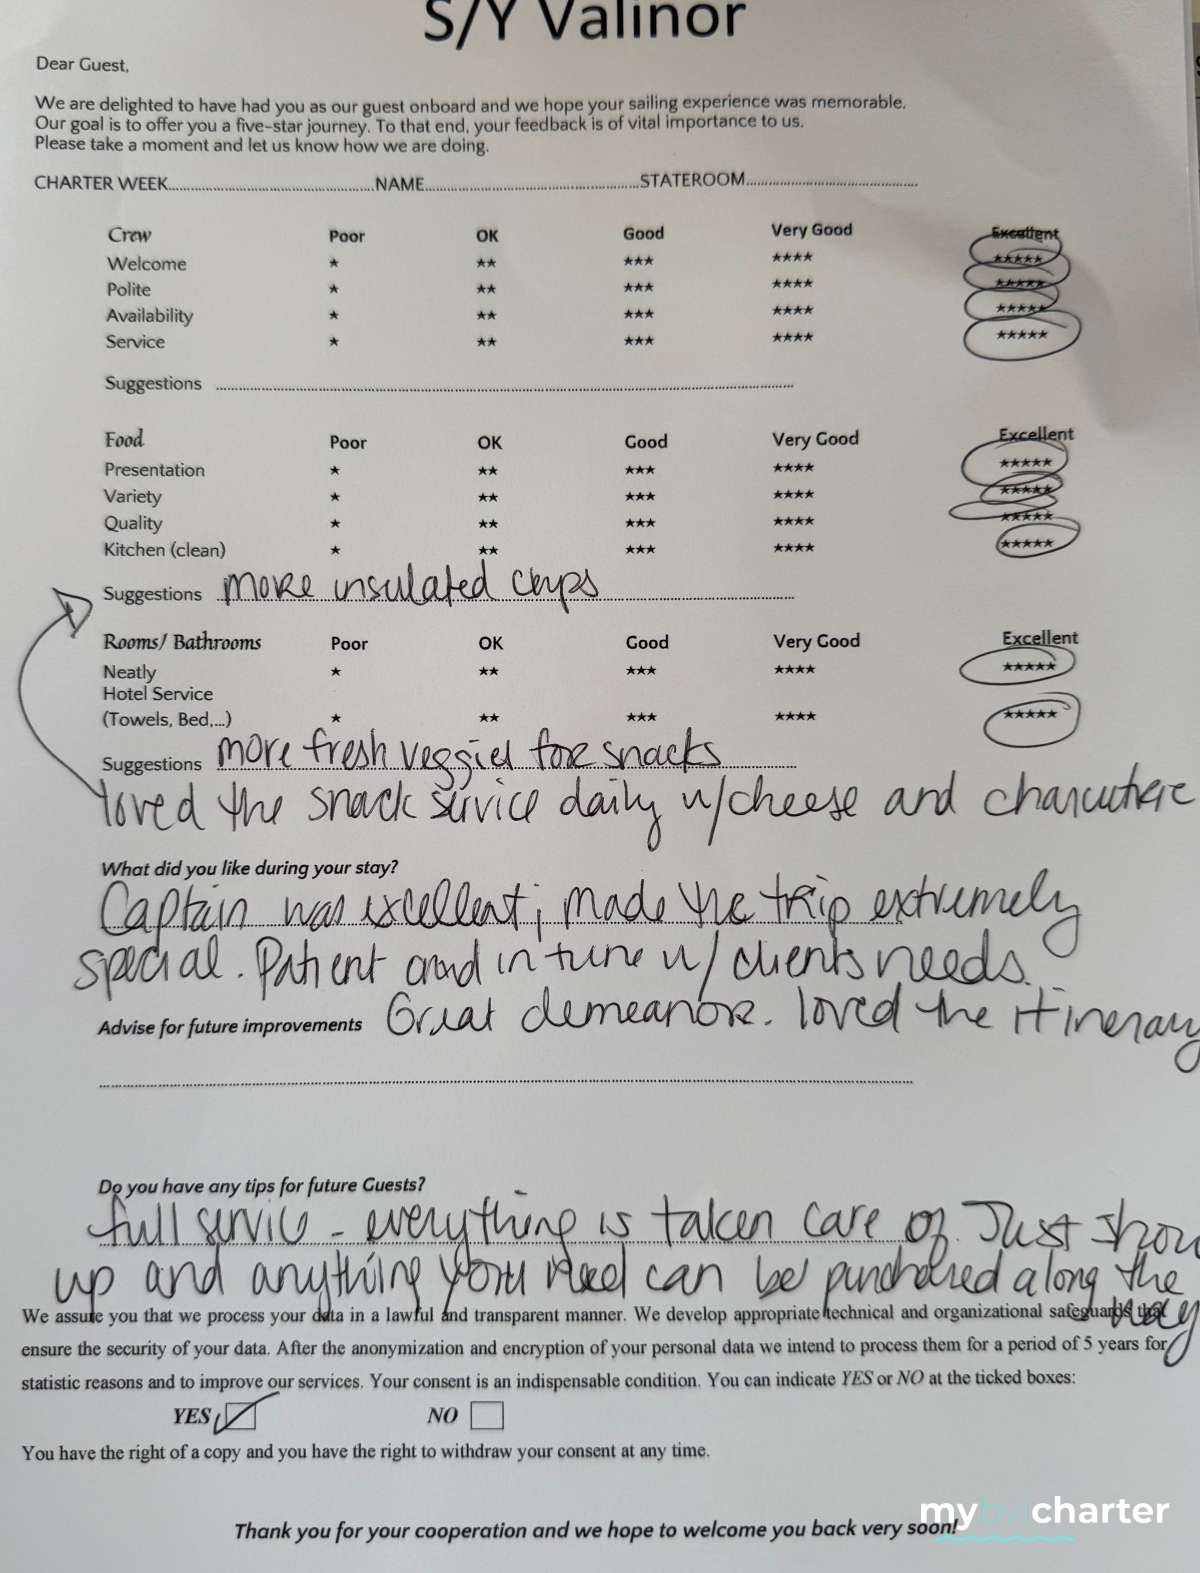 S/Y Valinor
Dear Guest,
We are delighted to have had you as our guest onboard and we hope your sailing experience was memorable.
Our goal is to offer you a five-star journey. To that end, your feedback is of vital importance to us.
Please take a moment and let us know how we are doing.
CHARTER WEEK NAME STATEROOM
Crew Poor OK Good Very Good Excellent
Welcome ★ ★★ ★★★ ★★★★ ★★★★★
Polite ★ ★★ ★★★ ★★★★ ★★★★★
Availability ★ ★★ ★★★ ★★★★ ★★★★★
Service ★ ★★ ★★★ ★★★★ ★★★★★
Suggestions
Food Poor OK Good Very Good Excellent
Presentation ★ ★★ ★★★ ★★★★ ★★★★★
Variety ★ ★★ ★★★ ★★★★ ★★★★★
Quality ★ ★★ ★★★ ★★★★ ★★★★★
Kitchen (clean) ★ ★★ ★★★ ★★★★ ★★★★★
Suggestions more insulated cups
Rooms/ Bathrooms Poor OK Good Very Good Excellent
Neatly ★ ★★ ★★★ ★★★★ ★★★★★
Hotel Service
(Towels, Bed,...) ★ ★★ ★★★ ★★★★ ★★★★★
Suggestions more fresh veggies for snacks
loved the snack service daily w/cheese and
What did you like during your stay?
Captain was excellent; made the trip extremely
special. Patient and in tune w/ clients needs.
Advise for future improvements Great demeanor. loved the itinerary
Do you have any tips for future Guests?
full service - everything is taken care of. Just show
up and anything you need can be purchased along the
way
We assure you that we process your data in a lawful and transparent manner. We develop appropriate technical and organizational safeguards that
ensure the security of your data. After the anonymization and encryption of your personal data we intend to process them for a period of 5 years for
statistic reasons and to improve our services. Your consent is an indispensable condition. You can indicate YES or NO at the ticked boxes:
YES NO
You have the right of a copy and you have the right to withdraw your consent at any time.
mybvicharter
Thank you for your cooperation and we hope to welcome you back very soon!